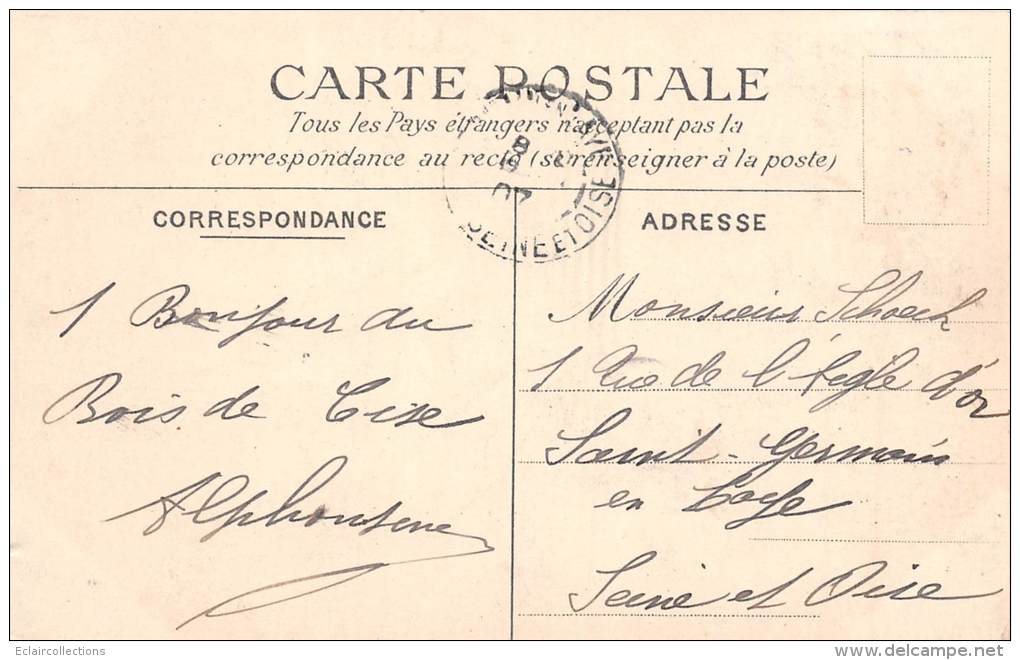 CARTE POSTALE
Tous les Pays étrangers n'acceptant pas la
correspondance au recto (se renseigner à la poste)
CORRESPONDANCE
ADRESSE
1 Bonjour du
Bois de Cise
Alphonsine
Monsieur Schoech
1 Rue de l'Aigle d'or
Saint-Germain
en Laye
Seine et Oise
8
07
SEINE ET OISE
Eclaircollections
www.delcampe.net